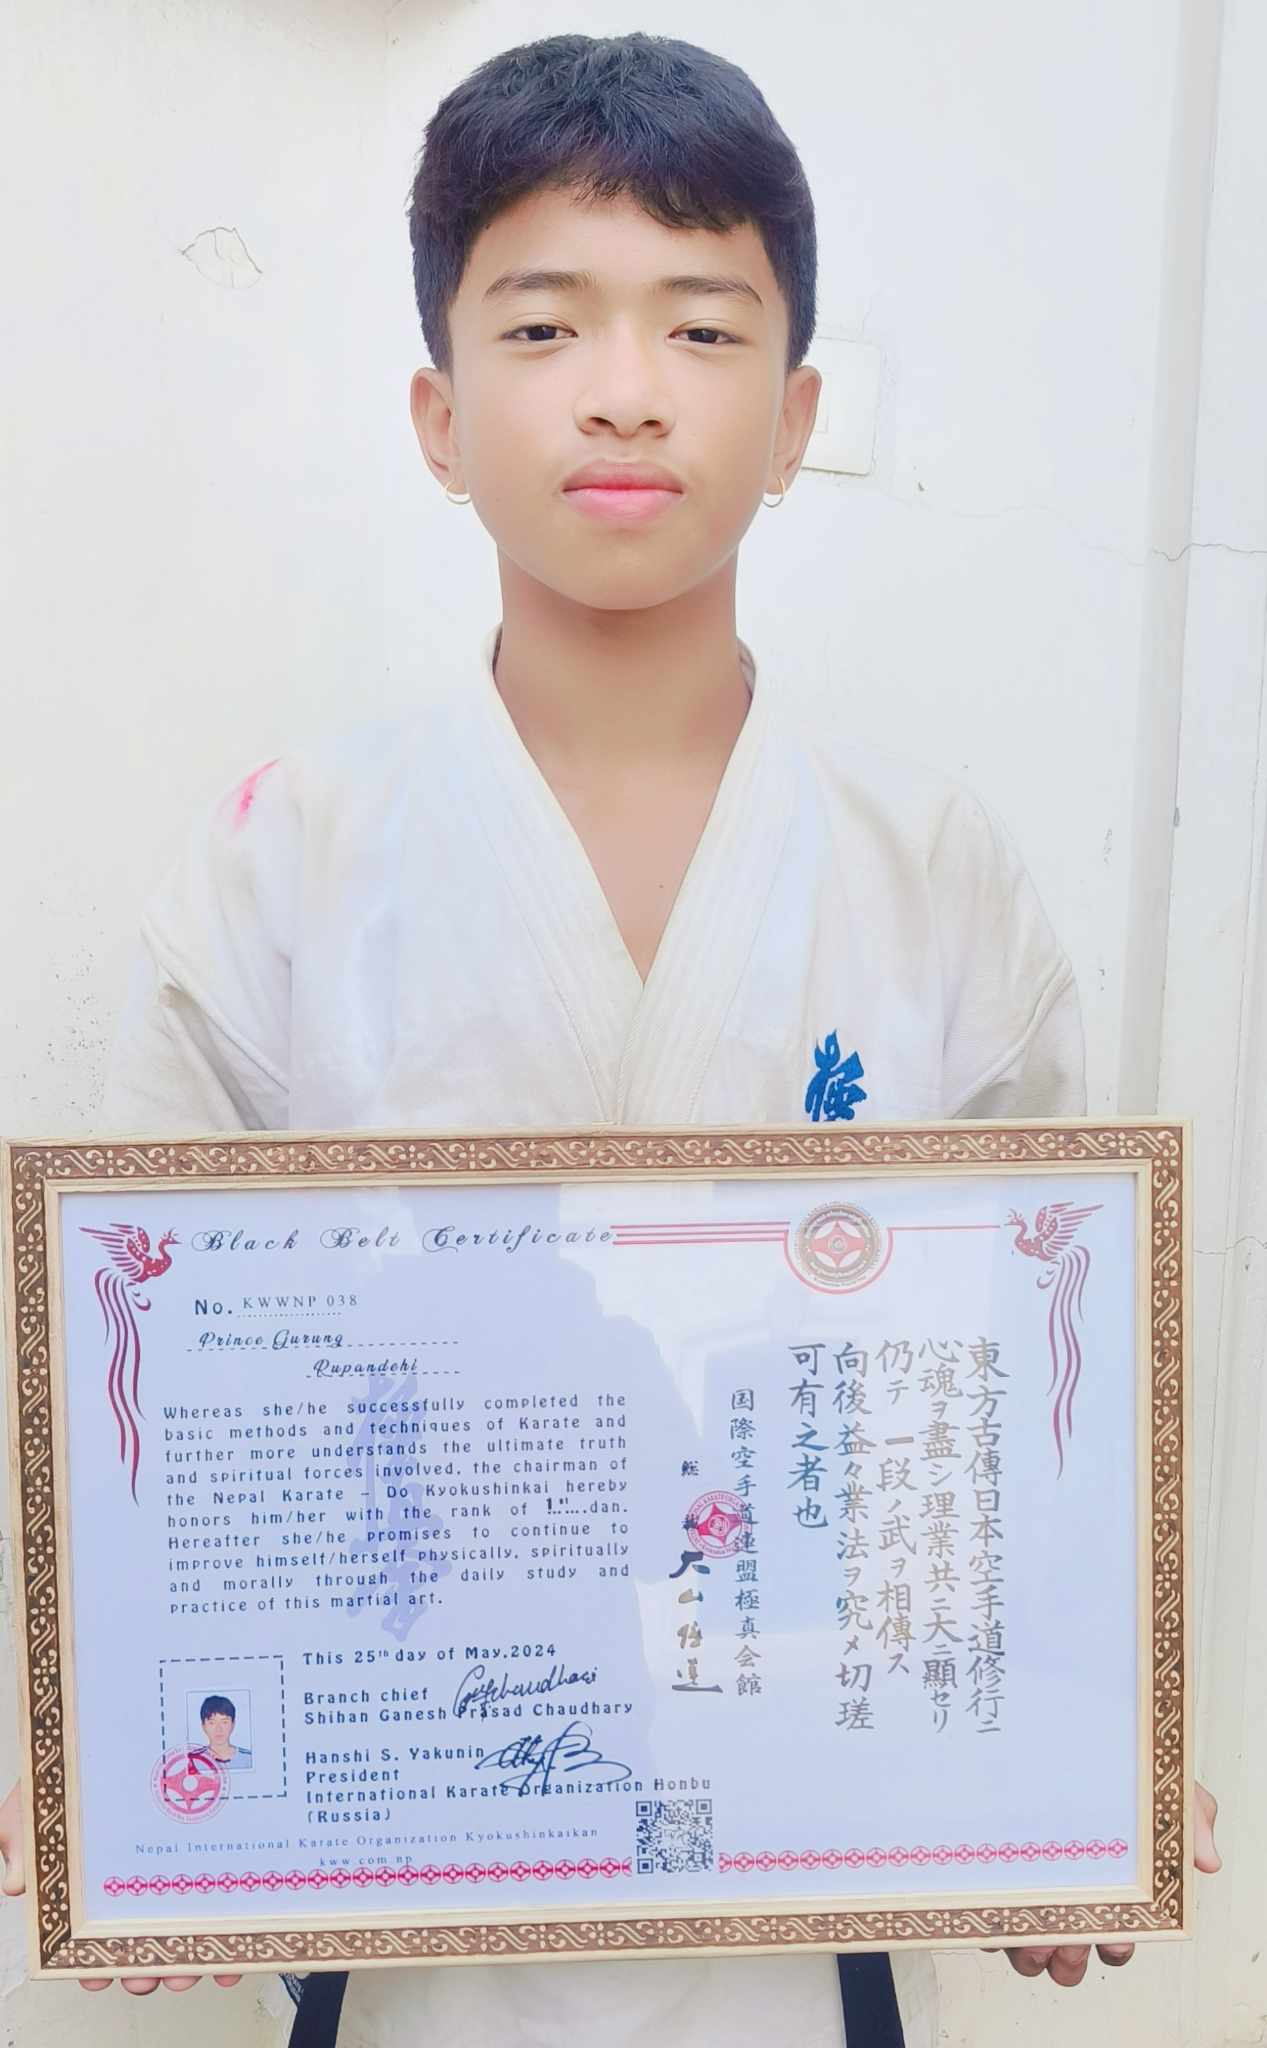 極
Black Belt Certificate
No. KWWNP 038
Prince Gurung
Rupandehi
Whereas she/he successfully completed the
basic methods and techniques of Karate and
further more understands the ultimate truth
and spiritual forces involved, the chairman of
the Nepal Karate – Do Kyokushinkai hereby
honors him/her with the rank of 1st dan.
Hereafter she/he promises to continue to
improve himself/herself physically, spiritually
and morally through the daily study and
practice of this martial art.
This 25th day of May.2024
Branch chief
Shihan Ganesh Prasad Chaudhary
Hanshi S. Yakunin
President
International Karate Organization Honbu
(Russia)
Nepal International Karate Organization Kyokushinkaikan
kww.com.np
東方古傳日本空手道修行ニ
心魂ヲ盡シ理業共ニ大ニ顯セリ
仍テ一段ノ武ヲ相傳ス
向後益々業法ヲ究メ切瑳
可有之者也
国際空手道連盟極真会館
大山倍達